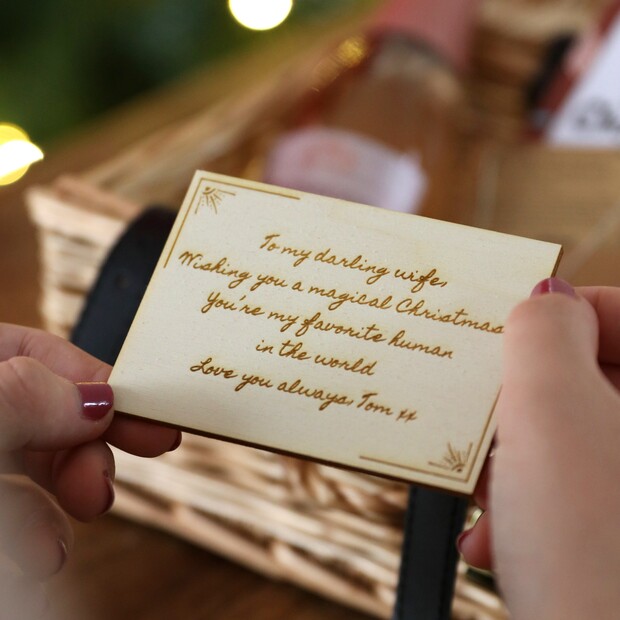 To my darling wife,
Wishing you a magical Christmas
You're my favorite human
in the world
Love you always, Tom xx